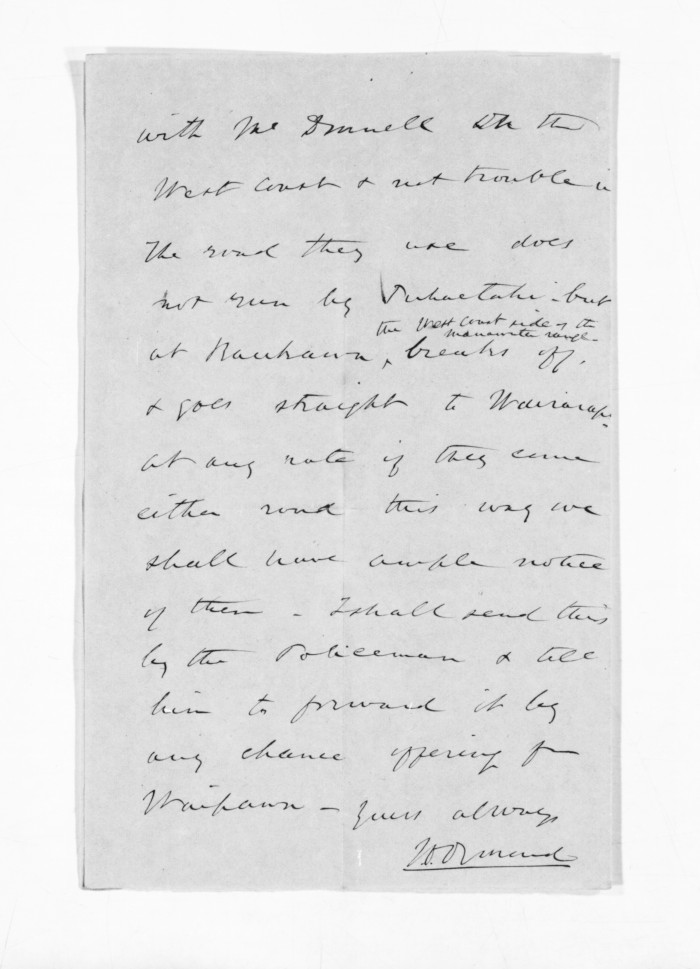 with McDonnell on the
West Coast & not trouble in
The road they use does
not run by Puhaetahi - but
the West Coast side of the
Manawatu range -
at Raukawa, breaks off,
& goes straight to Wairarapa
at any rate if they come
either road this way we
shall have ample notice
of them - I shall send this
by the Policeman & tell
him to forward it by
any chance offering for
Waipawa - yours always
JD Ormond